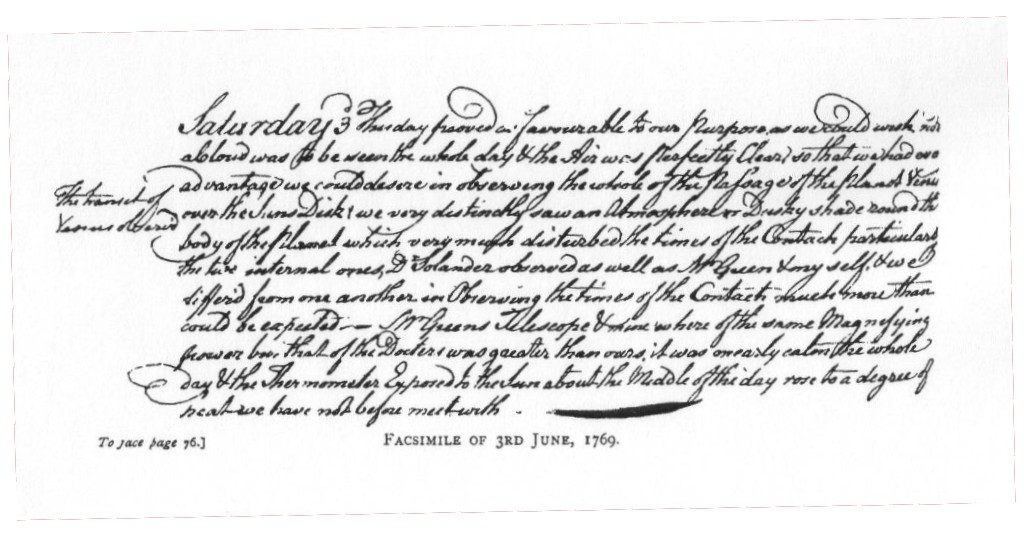 Saturday 3d This day proved as favourable to our Purpose as we could wish not
a Cloud was to be seen the whole day & the Air was perfectly Clear, so that we had eve
The transit of
Venus observ'd
advantage we could desire in observing the whole of the Passage of the Planet Venus
over the Suns Disk; we very distinctly saw an Atmosphere or Dusky shade round the
body of the Planet which very much disturbed the times of the Contacts particularly
the two internal ones, Dr Solander observed as well as Mr Green & my self, & we
differ'd from one another in Observing the times of the Contacts much more than
could be expected — Mr Greens Telescope & mine where of the same Magnifying
power but that of the Doctors was greater than ours, it was nearly calm the whole
day & the Thermometer Exposed to the Sun about the Middle of the day rose to a degree of
heat we have not before meet with.
To face page 76.]
FACSIMILE OF 3RD JUNE, 1769.